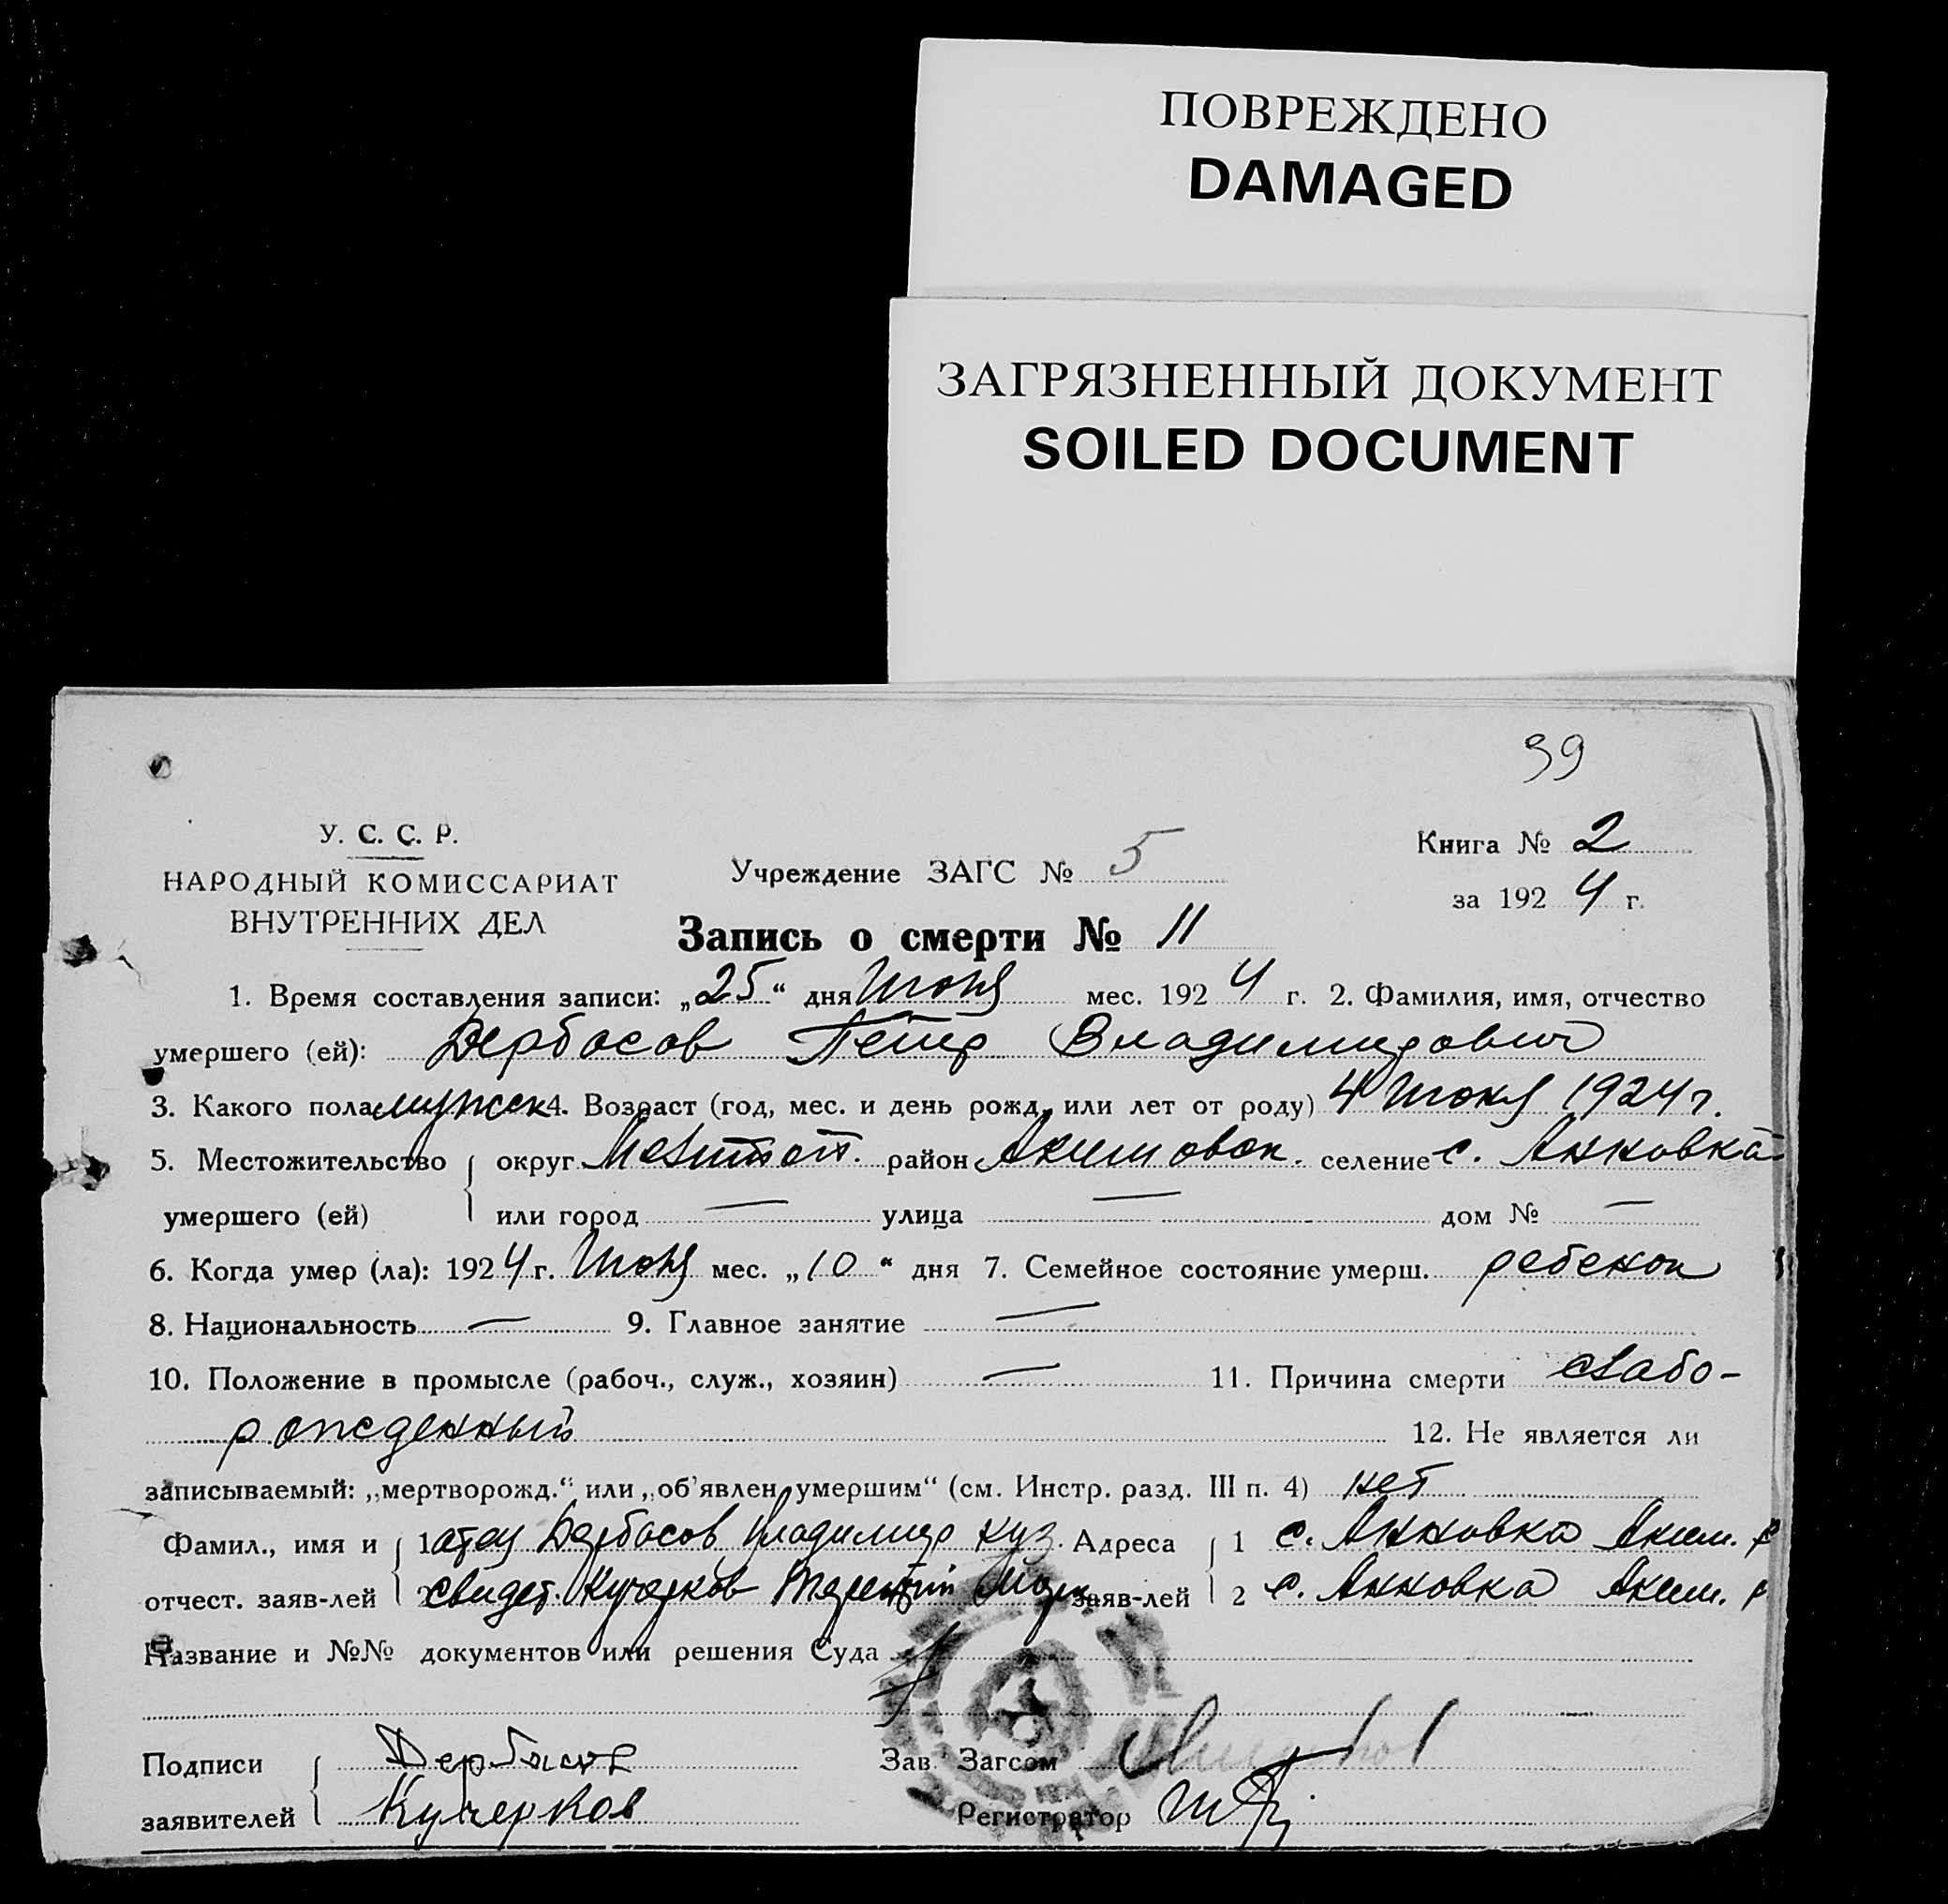 ПОВРЕЖДЕНО
DAMAGED
ЗАГРЯЗНЕННЫЙ ДОКУМЕНТ
SOILED DOCUMENT
39
У. С. С. Р.
НАРОДНЫЙ КОМИССАРИАТ
ВНУТРЕННИХ ДЕЛ
Учреждение ЗАГС № 5
Книга № 2
за 1924 г.
Запись о смерти № 11
1. Время составления записи: „25“ дня Июня мес. 1924 г. 2. Фамилия, имя, отчество
умершего (ей): Дербасов Петр Владимирович
3. Какого пола мужск 4. Возраст (год, мес. и день рожд. или лет от роду) 4 Июня 1924 г.
5. Местожительство округ Мелитоп. район Акимовск. селение с. Анновка
умершего (ей) или город — улица — дом № —
6. Когда умер (ла): 1924 г. Июня мес. „10“ дня 7. Семейное состояние умерш. ребенок
8. Национальность — 9. Главное занятие —
10. Положение в промысле (рабоч., служ., хозяин) — 11. Причина смерти слабо-
рожденный 12. Не является ли
записываемый: „мертворожд.“ или „об'явлен умершим“ (см. Инстр. разд. III п. 4) нет
Фамил., имя и 1 отец Дербасов Владимир Куз. Адреса 1 с. Анновка Аким. р
отчест. заяв-лей 2 свидет. Кучерков Терентий заяв-лей 2 с. Анновка Аким. р
Название и №№ документов или решения Суда
Подписи Дербасов Зав. Загсом
заявителей Кучерков Регистратор